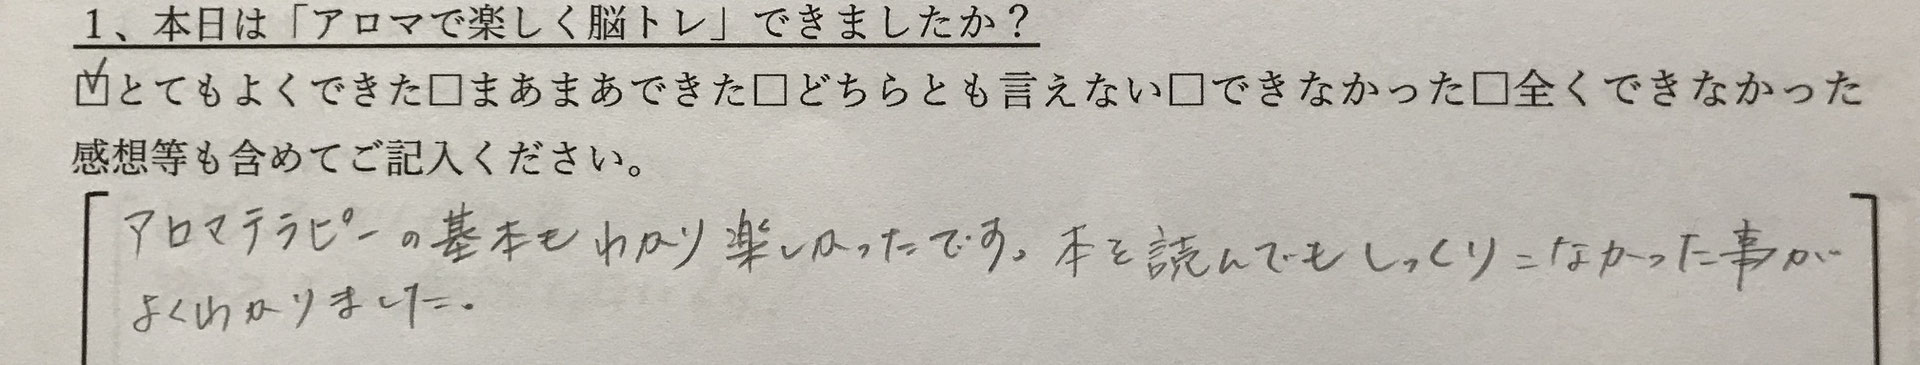 1、本日は「アロマで楽しく脳トレ」できましたか？
☑とてもよくできた□まあまあできた□どちらとも言えない□できなかった□全くできなかった
感想等も含めてご記入ください。
アロマテラピーの基本もわかり楽しかったです。本を読んでもしっくりこなかった事が
よくわかりました。